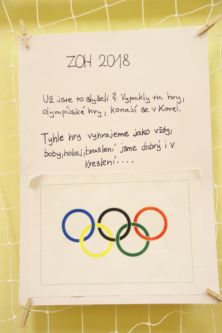 ZOH 2018
Už jste to slyšeli? Vypukly tu hry,
olympijské hry, konají se v Korei.
Tyhle hry vyhrajeme jako vždy,
boby, hokej, bruslení jsme dobrý i v
kreslení....